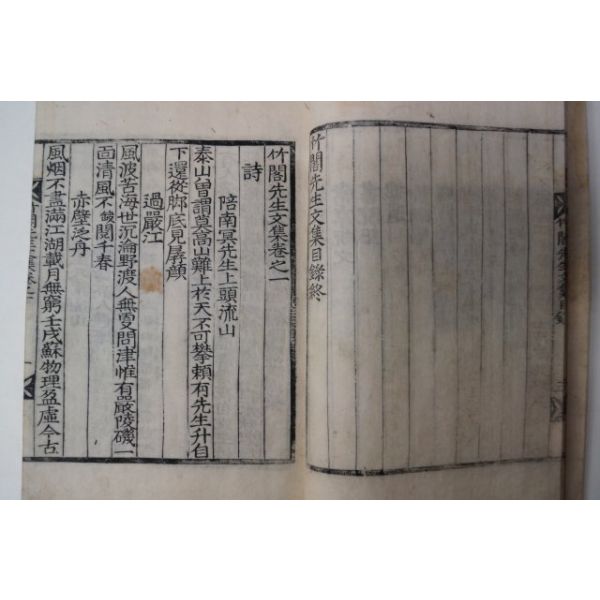 竹閣先生文集目錄終
竹閣先生文集卷之一
詩
陪南冥先生上頭流山
泰山曾謂莫高山難上於天不可攀賴有先生升自
下還從脚底見孱顔
過嚴江
風波苦海世沉淪野渡人無更問津惟有嚴陵磯一
面清風不缺閱千春
赤壁泛舟
風烟不盡滿江湖載月無窮壬戌蘇物理盈虛今古